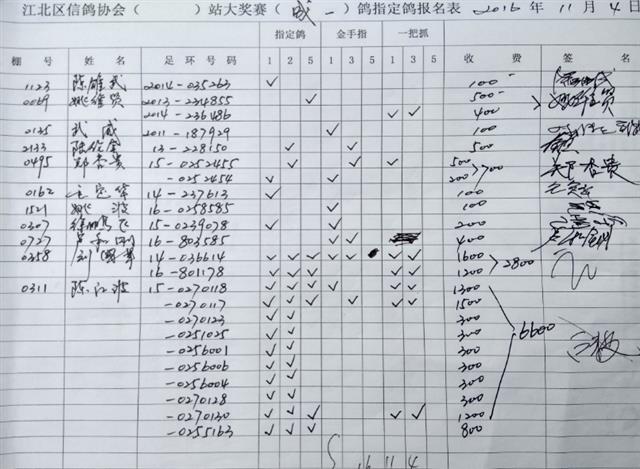 江北区信鸽协会（ ）站大奖赛（咸一）鸽指定鸽报名表 2016年11月4日
指定鸽 金手指 一把抓
棚号 姓名 足环号码 1 2 5 1 3 5 1 3 5 收费 签名
1123 陈雄武 2014-035263 ✓ 100
0069 姚 贤 2013-234855 ✓ 500
2014-236486 ✓ ✓ 400
2135 武威 2011-187929 ✓ 100
2133 13-228150 ✓ ✓ 500
0495 郑春贵 15-0252455 ✓ ✓ ✓ 500
-0252454 ✓ ✓ 200 700
0162 14-237613 ✓ 100
1521 姚波 16-0258585 ✓ 100
0307 徐鹏飞 15-0239078 ✓ ✓ 200
0727 16-803585 ✓ ✓ 400
0358 刘 14-036614 ✓ ✓ ✓ ✓ ✓ ✓ ✓ 1600
16-801178 ✓ ✓ ✓ ✓ ✓ 1200 2800
0311 陈江 15-0270118 ✓ ✓ ✓ ✓ ✓ ✓ 1300
-0270117 ✓ ✓ ✓ ✓ ✓ ✓ 1500
-0270123 ✓ ✓ 300
-0251025 ✓ ✓ 300
-0256001 ✓ ✓ 300 6600
-0256006 ✓ ✓ 300
-0256004 ✓ ✓ 300
-0270128 ✓ ✓ 300
-0270130 ✓ ✓ ✓ ✓ ✓ 1200
-0255163 ✓ ✓ ✓ 800
16 11 4